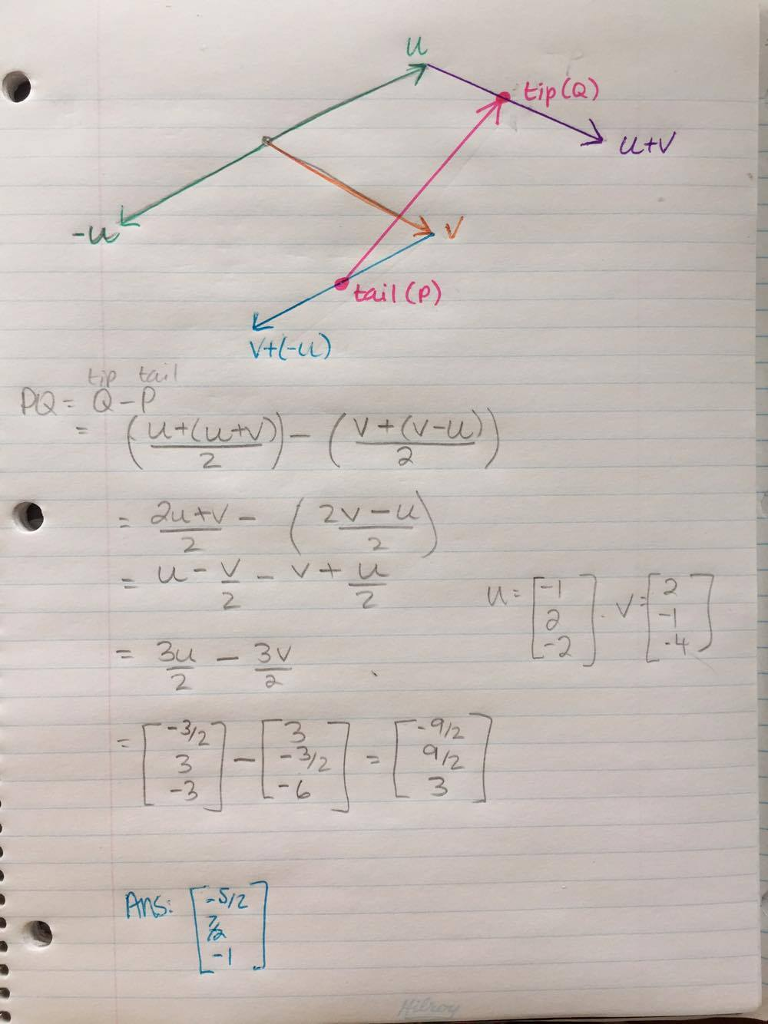 u
tip(Q)
u+v
-u
v
tail(P)
v+(-u)
tip tail
PQ = Q-P
= (u+(u+v)/2) - (v+(v-u)/2)
= 2u+v/2 - (2v-u/2)
= u - v/2 - v + u/2
u = [-1 2 -2] . v = [2 -1 -4]
= 3u/2 - 3v/2
= [-3/2 3 -3] - [3 -3/2 -6] = [-9/2 9/2 3]
Ans: [-5/2 7/2 -1]
Hilroy